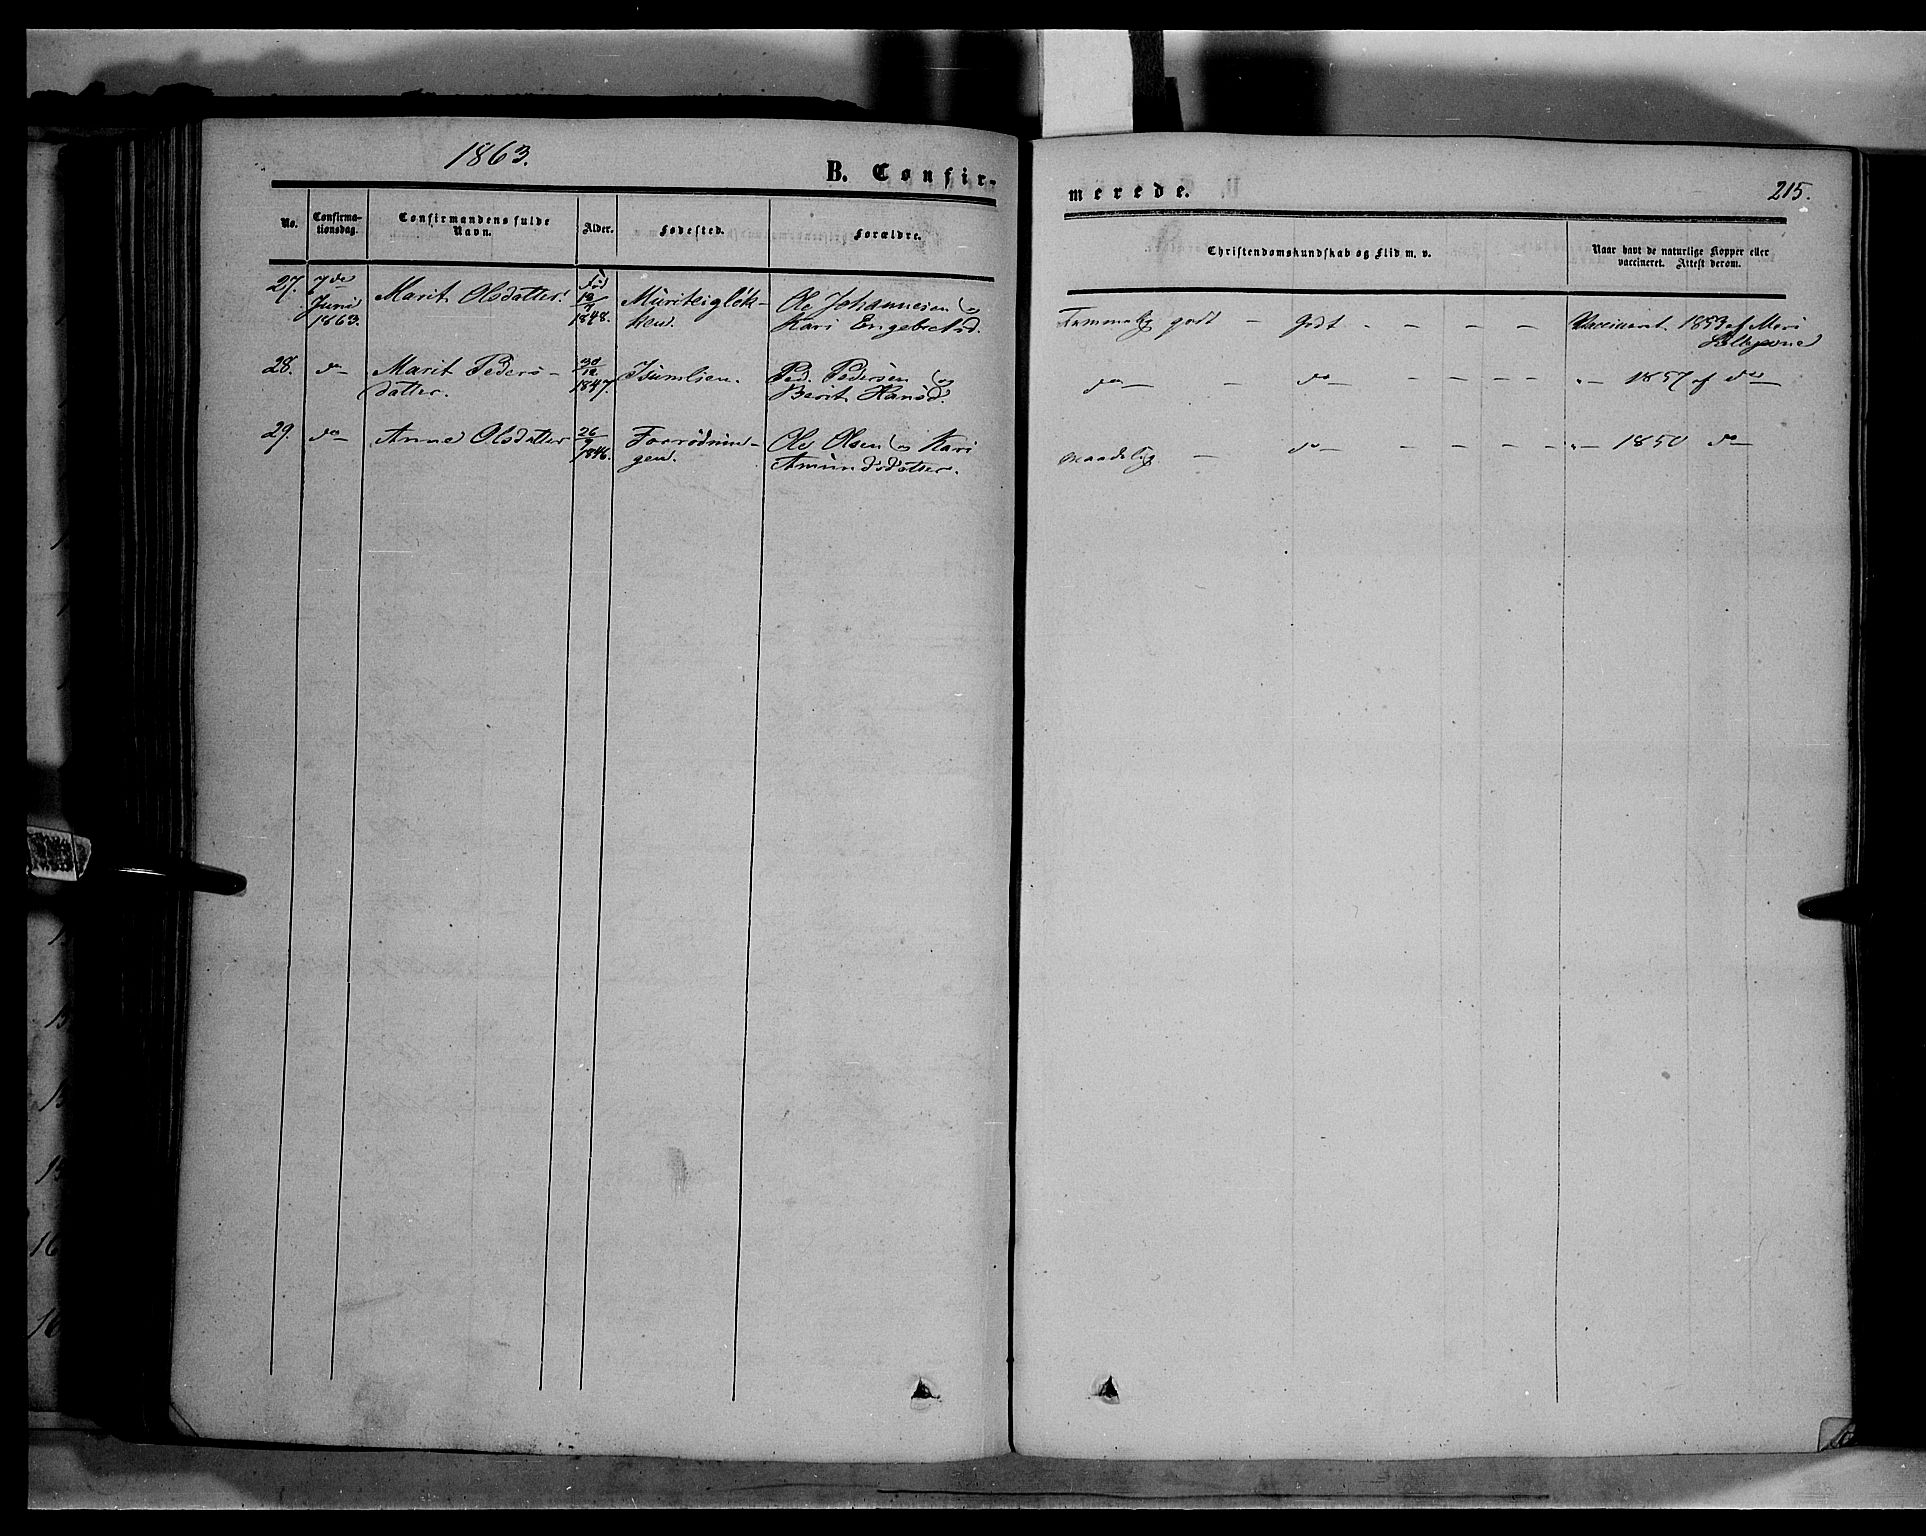 1863.
B. Confir-
No.
Confirma-
tionsdag.
Confirmandens fulde
Navn.
Alder.
Fødested.
Forældre.
27.
7de
Juni
1863.
Marit Olsdatter.
Fød
1848.
Ole Johannesen og
Kari Engebretsd.
28.
do
Marit Peders-
datter.
1847.
Isumlien.
Ped. Pedersen og
Berit Hansd.
29.
do
Anne Olsdatter
26
1846.
gen.
Ole Olsen og Kari
Amundsdatter.
merede.
215.
Christendomskundskab og Flid m. v.
Naar havt de naturlige Kopper eller
vaccineret. Attest derom.
Temmelig godt - Godt - - - - Vaccineret 1853 af
do - do - - - - - 1857 af do
maadelig - do - - - - - 1850 do